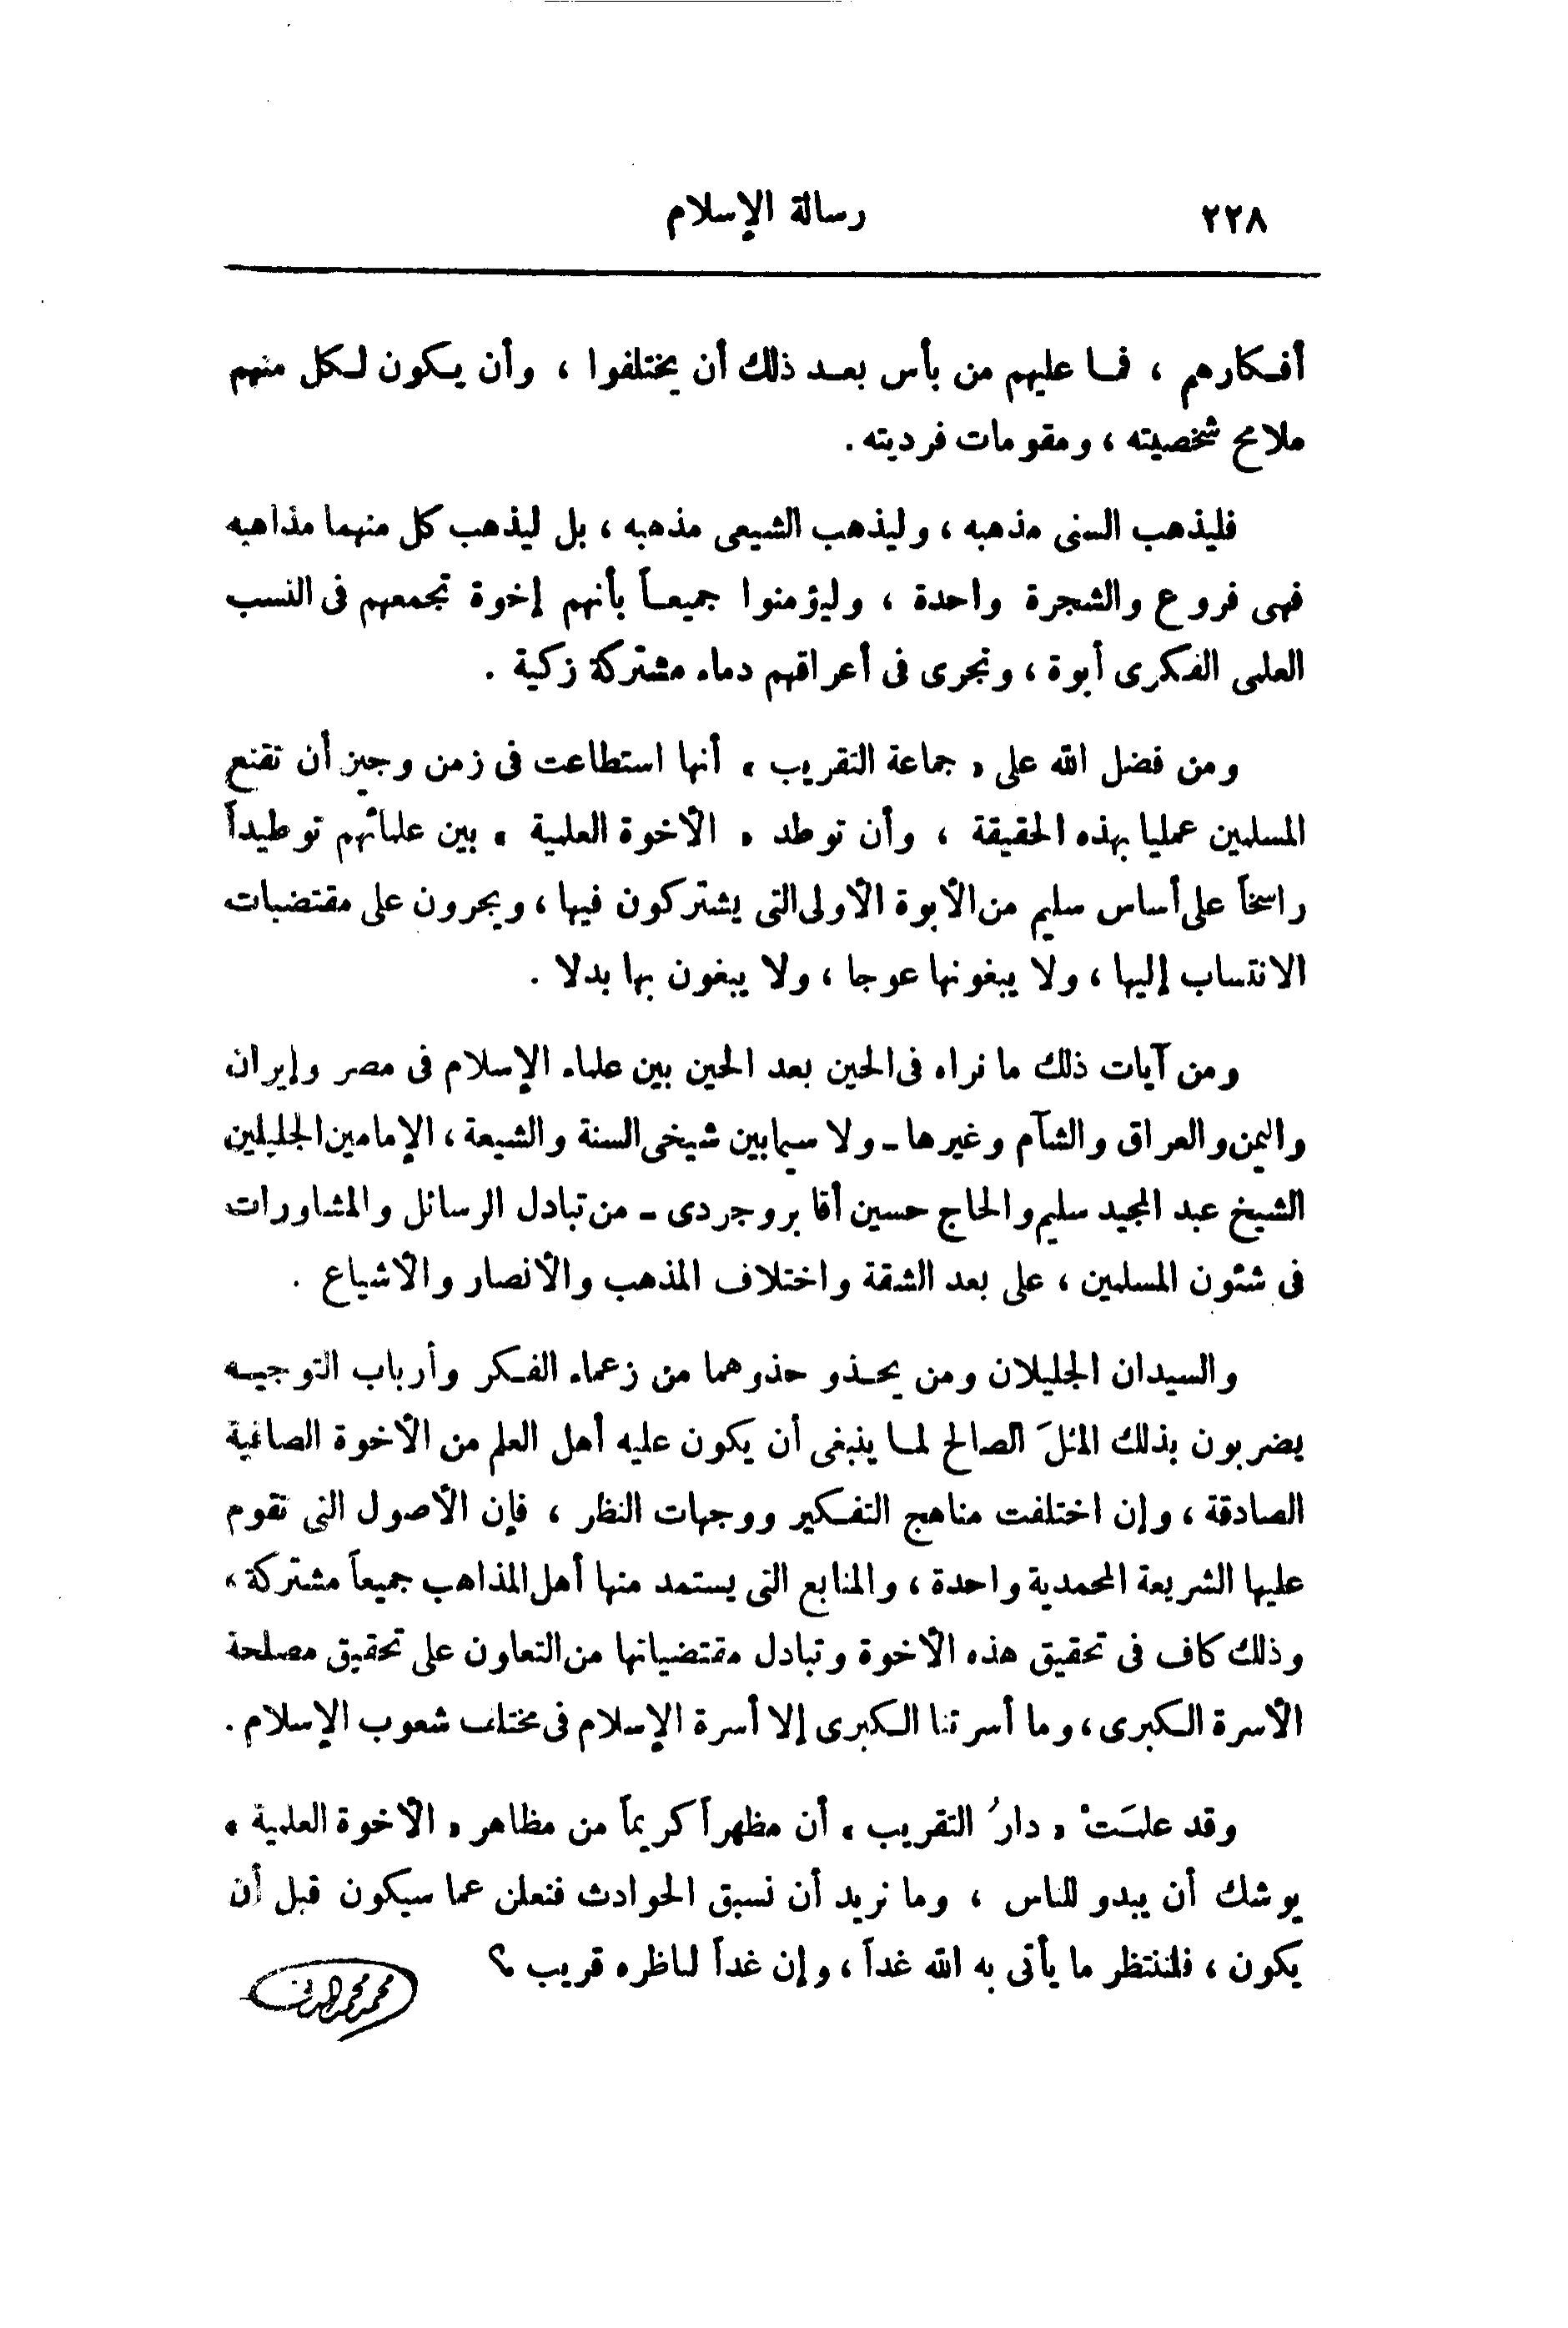 ٢٢٨ رسالة الإسلام
أفكارهم ، فما عليهم من بأس بعد ذلك أن يختلفوا ، وأن يكون لكل منهم
ملامح شخصيته ، ومقومات فرديته .
فليذهب السنى مذهبه ، وليذهب الشيعى مذهبه ، بل ليذهب كل منهما مذاهبه
فهى فروع والشجرة واحدة ، وليؤمنوا جميعاً بأنهم إخوة تجمعهم فى النسب
العلمى الفكرى أبوة ، وتجرى فى أعراقهم دماء مشتركة زكية .
ومن فضل الله على « جماعة التقريب » أنها استطاعت فى زمن وجيز أن تقنع
المسلمين عمليا بهذه الحقيقة ، وأن توطد « الأخوة العلمية » بين علمائهم توطيداً
راسخاً على أساس سليم من الأبوة الأولى التى يشتركون فيها ، ويجرون على مقتضيات
الانتساب إليها ، ولا يبغونها عوجا ، ولا يبغون بها بدلا .
ومن آيات ذلك ما نراه فى الحين بعد الحين بين علماء الإسلام فى مصر وإيران
واليمن والعراق والشآم وغيرها ــ ولا سيما بين شيخى السنة والشيعة ، الإمامين الجليلين
الشيخ عبد المجيد سليم والحاج حسين أقا بروجردى ــ من تبادل الرسائل والمشاورات
فى شئون المسلمين ، على بعد الشقة واختلاف المذهب والأنصار والأشياع .
والسيدان الجليلان ومن يحذو حذوهما من زعماء الفكر وأرباب التوجيه
يضربون بذلك المثلَ الصالح لما ينبغى أن يكون عليه أهل العلم من الأخوة الصافية
الصادقة ، وإن اختلفت مناهج التفكير ووجهات النظر ، فإن الأصول التى تقوم
عليها الشريعة المحمدية واحدة ، والمنابع التى يستمد منها أهل المذاهب جميعاً مشتركة ،
وذلك كاف فى تحقيق هذه الأخوة وتبادل مقتضياتها من التعاون على تحقيق مصلحة
الأسرة الكبرى ، وما أسرتنا الكبرى إلا أسرة الإسلام فى مختلف شعوب الإسلام .
وقد علمَتْ « دارُ التقريب » أن مظهراً كريماً من مظاهر « الأخوة العلمية »
يوشك أن يبدو للناس ، وما نريد أن نسبق الحوادث فنعلن عما سيكون قبل أن
يكون ، فلننتظر ما يأتى به الله غداً ، وإن غداً لناظره قريب ؟
محمد محمد المدنى